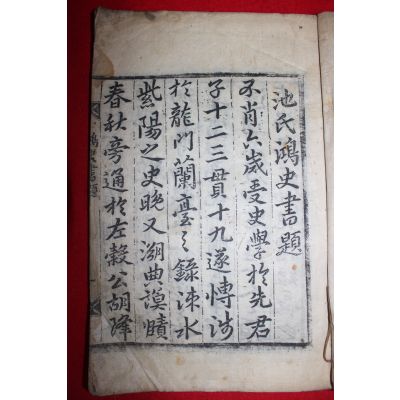 池氏鴻史書題
不肖六歲受史學於先君
子十二三貫十九遂博涉
於龍門蘭臺之錄涑水
紫陽之史晚又溯典謨賾
春秋旁通於左穀公胡降
鴻史書題